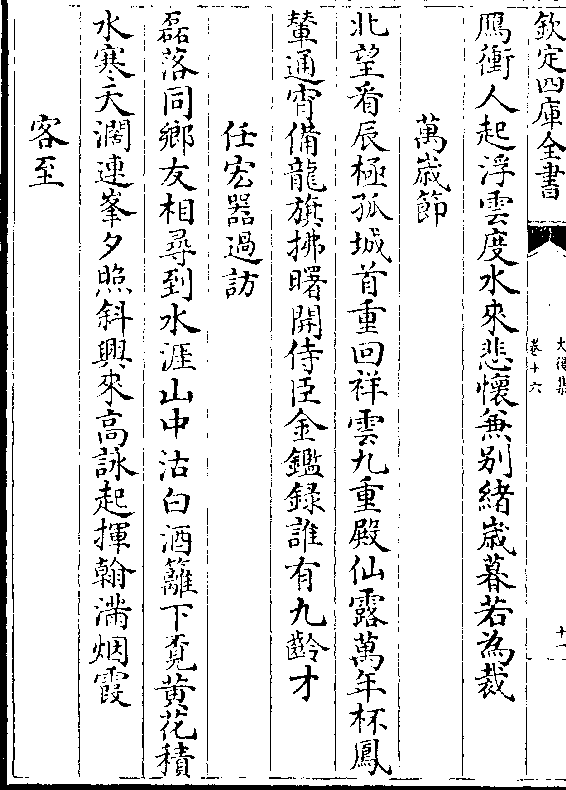 欽定四庫全書
卷十六
鴈衝人起浮雲度水來悲懷無别緒歳暮若為裁
萬歳節
北望看辰極孤城首重回祥雲九重殿仙露萬年杯鳳
輦通宵備龍旗拂曙開侍臣金鑑録誰有九齡才
任宏器過訪
磊落同鄉友相尋到水涯山中沽白酒籬下覔黄花積
水寒天濶連峯夕照斜興來高詠起揮翰滿烟霞
客至